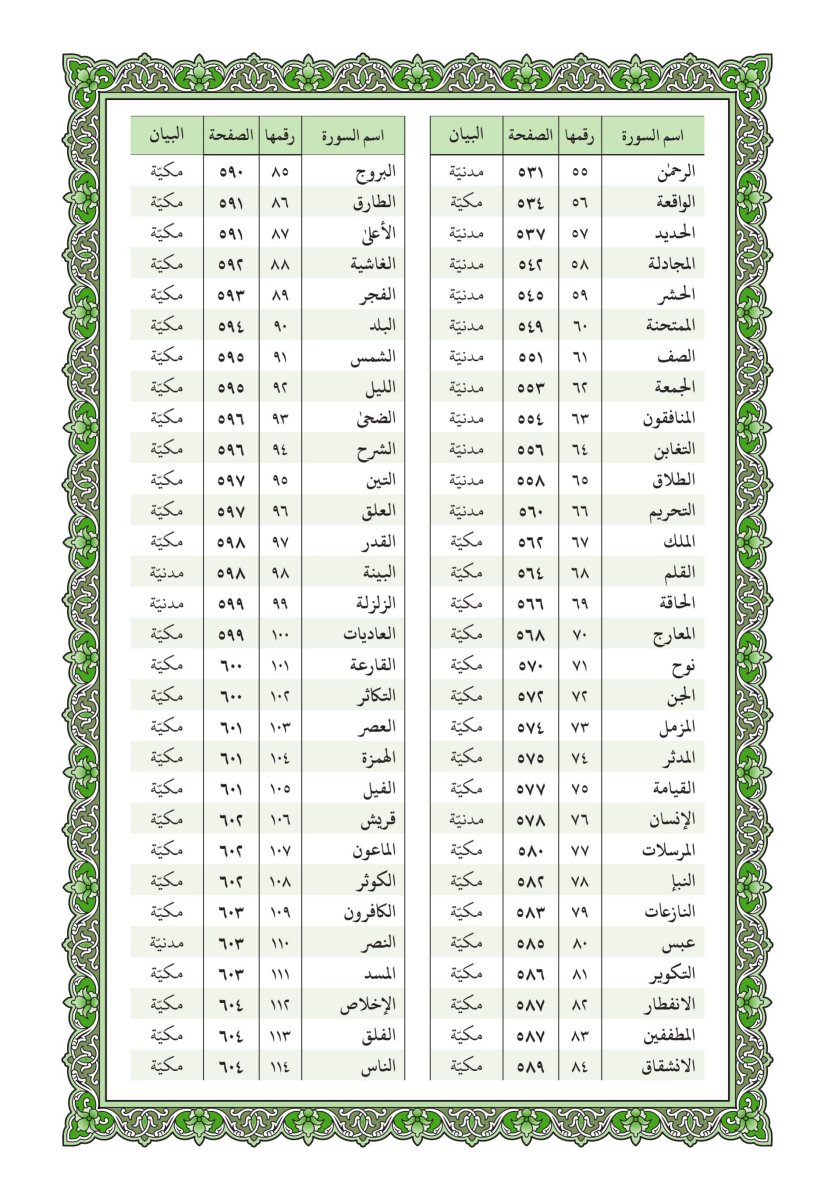 اسم السورة رقمها الصفحة البيان
الرحمٰن ٥٥ ٥٣١ مدنيّة
الواقعة ٥٦ ٥٣٤ مكيّة
الحديد ٥٧ ٥٣٧ مدنيّة
المجادلة ٥٨ ٥٤٢ مدنيّة
الحشر ٥٩ ٥٤٥ مدنيّة
الممتحنة ٦٠ ٥٤٩ مدنيّة
الصف ٦١ ٥٥١ مدنيّة
الجمعة ٦٢ ٥٥٣ مدنيّة
المنافقون ٦٣ ٥٥٤ مدنيّة
التغابن ٦٤ ٥٥٦ مدنيّة
الطلاق ٦٥ ٥٥٨ مدنيّة
التحريم ٦٦ ٥٦٠ مدنيّة
الملك ٦٧ ٥٦٢ مكيّة
القلم ٦٨ ٥٦٤ مكيّة
الحاقة ٦٩ ٥٦٦ مكيّة
المعارج ٧٠ ٥٦٨ مكيّة
نوح ٧١ ٥٧٠ مكيّة
الجن ٧٢ ٥٧٢ مكيّة
المزمل ٧٣ ٥٧٤ مكيّة
المدثر ٧٤ ٥٧٥ مكيّة
القيامة ٧٥ ٥٧٧ مكيّة
الإنسان ٧٦ ٥٧٨ مدنيّة
المرسلات ٧٧ ٥٨٠ مكيّة
النبإ ٧٨ ٥٨٢ مكيّة
النازعات ٧٩ ٥٨٣ مكيّة
عبس ٨٠ ٥٨٥ مكيّة
التكوير ٨١ ٥٨٦ مكيّة
الانفطار ٨٢ ٥٨٧ مكيّة
المطففين ٨٣ ٥٨٧ مكيّة
الانشقاق ٨٤ ٥٨٩ مكيّة
اسم السورة رقمها الصفحة البيان
البروج ٨٥ ٥٩٠ مكيّة
الطارق ٨٦ ٥٩١ مكيّة
الأعلىٰ ٨٧ ٥٩١ مكيّة
الغاشية ٨٨ ٥٩٢ مكيّة
الفجر ٨٩ ٥٩٣ مكيّة
البلد ٩٠ ٥٩٤ مكيّة
الشمس ٩١ ٥٩٥ مكيّة
الليل ٩٢ ٥٩٥ مكيّة
الضحىٰ ٩٣ ٥٩٦ مكيّة
الشرح ٩٤ ٥٩٦ مكيّة
التين ٩٥ ٥٩٧ مكيّة
العلق ٩٦ ٥٩٧ مكيّة
القدر ٩٧ ٥٩٨ مكيّة
البينة ٩٨ ٥٩٨ مدنيّة
الزلزلة ٩٩ ٥٩٩ مدنيّة
العاديات ١٠٠ ٥٩٩ مكيّة
القارعة ١٠١ ٦٠٠ مكيّة
التكاثر ١٠٢ ٦٠٠ مكيّة
العصر ١٠٣ ٦٠١ مكيّة
الهمزة ١٠٤ ٦٠١ مكيّة
الفيل ١٠٥ ٦٠١ مكيّة
قريش ١٠٦ ٦٠٢ مكيّة
الماعون ١٠٧ ٦٠٢ مكيّة
الكوثر ١٠٨ ٦٠٢ مكيّة
الكافرون ١٠٩ ٦٠٣ مكيّة
النصر ١١٠ ٦٠٣ مدنيّة
المسد ١١١ ٦٠٣ مكيّة
الإخلاص ١١٢ ٦٠٤ مكيّة
الفلق ١١٣ ٦٠٤ مكيّة
الناس ١١٤ ٦٠٤ مكيّة